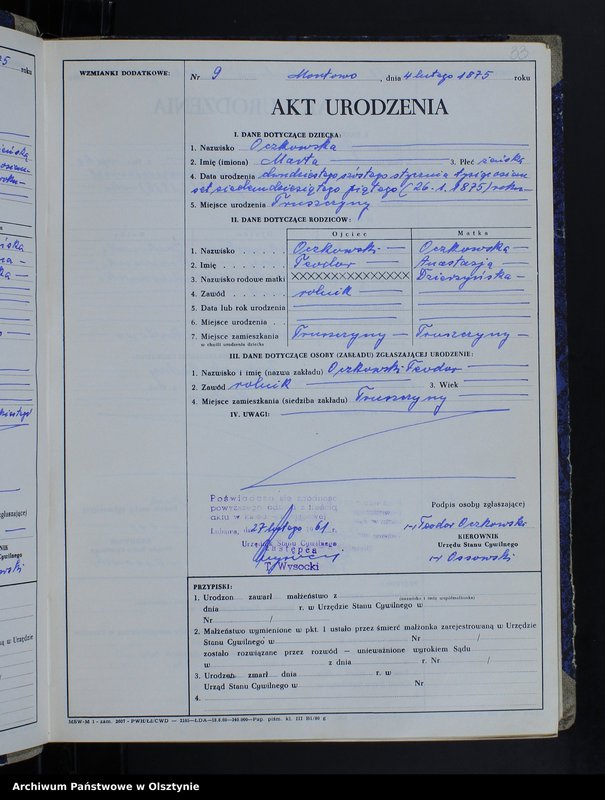 33
WZMIANKI DODATKOWE:
Nr 9 Montowo, dnia 4 lutego 1875 roku
AKT URODZENIA
I. DANE DOTYCZĄCE DZIECKA:
1. Nazwisko Oczkowska
2. Imię (imiona) Marta 3. Płeć żeńska
4. Data urodzenia dwudziestego szóstego stycznia tysiąc osiem-
set siedemdziesiątego piątego (26.1.1875) roku
5. Miejsce urodzenia Truszczyny
II. DANE DOTYCZĄCE RODZICÓW:
Ojciec Matka
1. Nazwisko Oczkowski Oczkowska
2. Imię Teodor Anastazja
3. Nazwisko rodowe matki XXXXXXXXXXXX Dzierzyńska
4. Zawód rolnik
5. Data lub rok urodzenia
6. Miejsce urodzenia
7. Miejsce zamieszkania Truszczyny Truszczyny
w chwili urodzenia dziecka
III. DANE DOTYCZĄCE OSOBY (ZAKŁADU) ZGŁASZAJĄCEJ URODZENIE:
1. Nazwisko i imię (nazwa zakładu) Oczkowski Teodor
2. Zawód rolnik 3. Wiek
4. Miejsce zamieszkania (siedziba zakładu) Truszczyny
IV. UWAGI:
Poświadcza się zgodność
powyższego odpisu z treścią
aktu w księdze
Lubawa, d. 27 lutego 1961 r.
Urzędnik Stanu Cywilnego
Zastępca
T. Wysocki
Podpis osoby zgłaszającej
Teodor Oczkowski
KIEROWNIK
Urzędu Stanu Cywilnego
Ossowski
PRZYPISKI:
1. Urodzon zawarł małżeństwo z
(nazwisko i imię współmałżonka)
dnia r. w Urzędzie Stanu Cywilnego w
Nr /
2. Małżeństwo wymienione w pkt. 1 ustało przez śmierć małżonka zarejestrowaną w Urzędzie
Stanu Cywilnego w Nr /
zostało rozwiązane przez rozwód — unieważnione wyrokiem Sądu
w z dnia r. Nr /
3. Urodzon zmarł dnia r. w
Urząd Stanu Cywilnego w Nr
4.
Archiwum Państwowe w Olsztynie